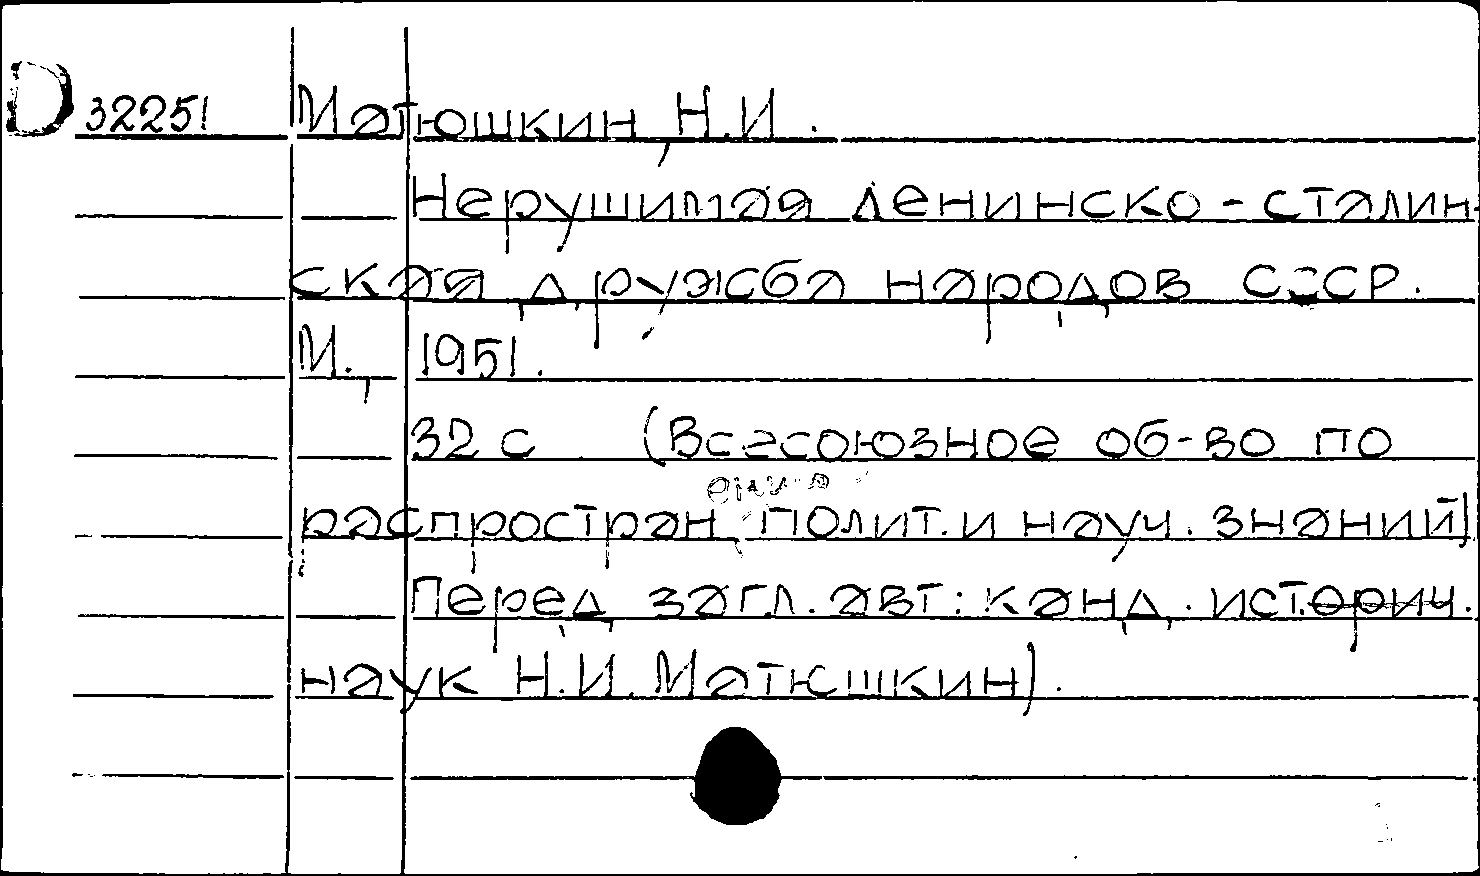 D 32251 Матюшкин, Н.И.
Нерушимая ленинско-сталин-
ская дружба народов СССР.
М., 1951.
32 с (Всесоюзное об-во по
распростран. полит. и науч. знаний)
Перед загл. авт: канд. историч.
наук Н.И. Матюшкин).